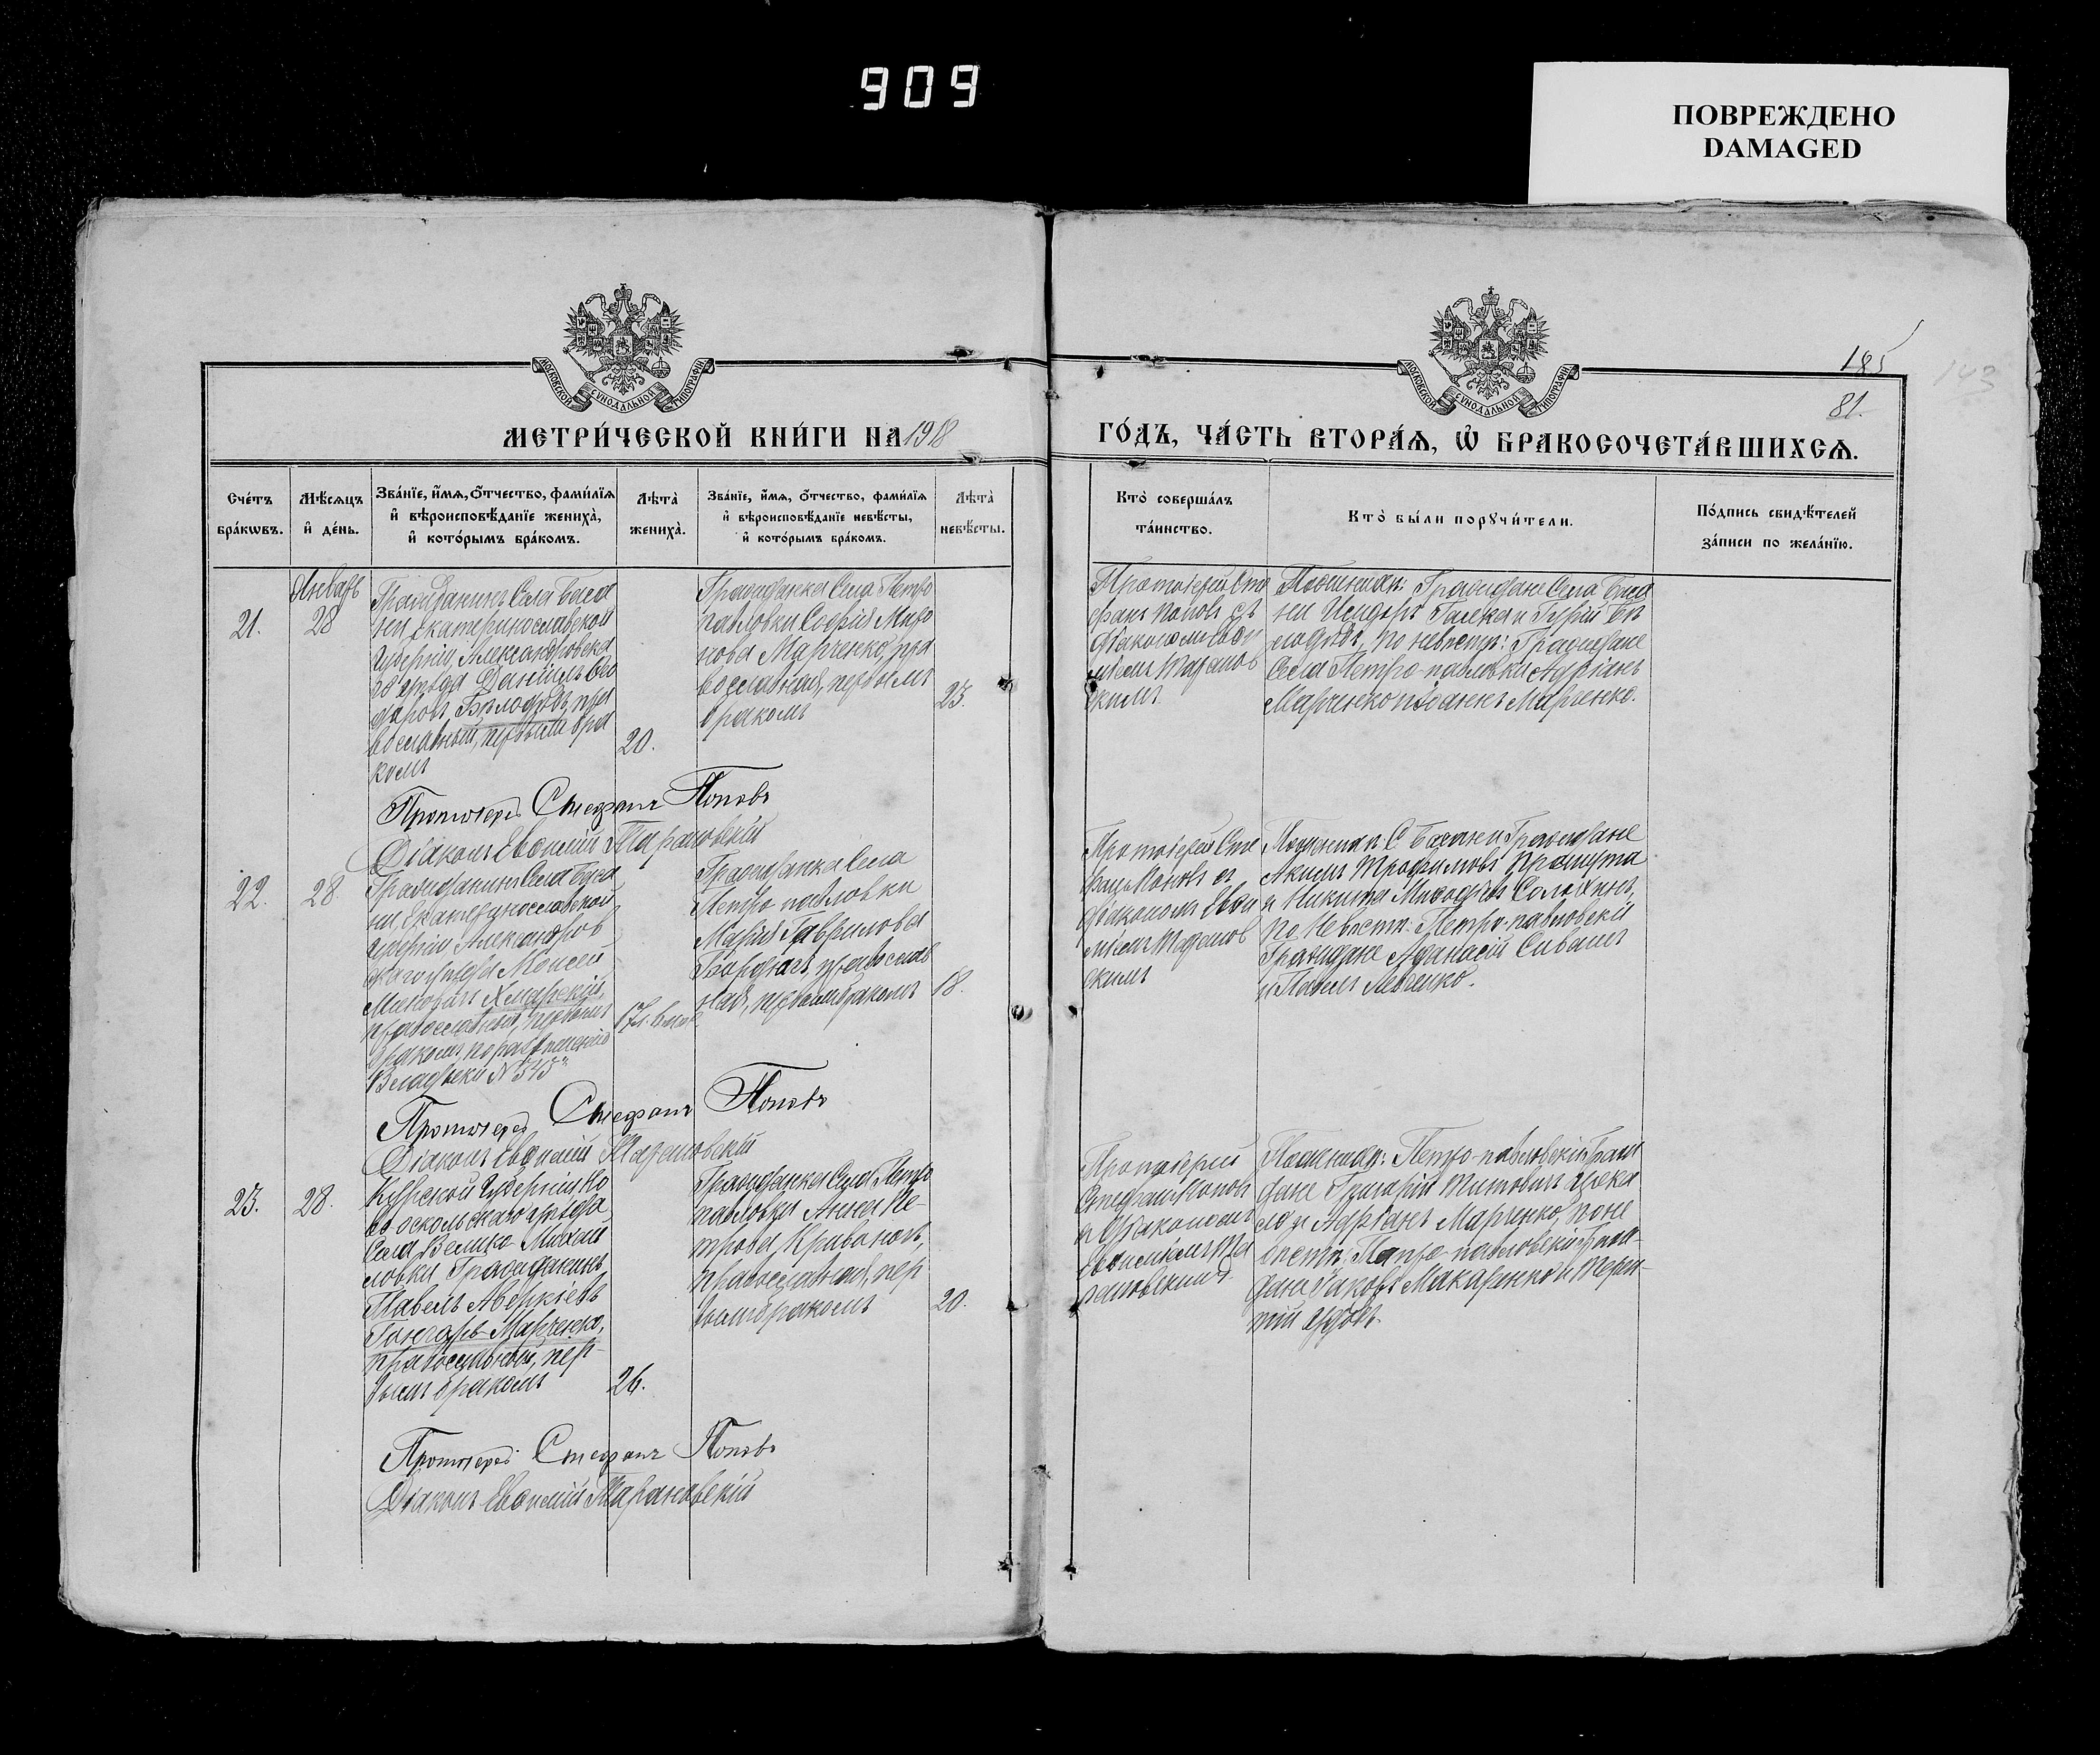 909
ПОВРЕЖДЕНО
DAMAGED
МОСКОВСКОЙ СѴНОДАЛЬНОЙ ТИПОГРАФІИ
МОСКОВСКОЙ СѴНОДАЛЬНОЙ ТИПОГРАФІИ
185
143
81.
МЕТРИ́ЧЕСКОЙ КНИ́ГИ НА 1918
ГО́ДЪ, ЧА́СТЬ ВТОРА́Ѧ, Ѡ҆ БРАКОСОЧЕТА́ВШИХСѦ.
Сче́тъ бра́кѡвъ.
Мѣ́сяцъ и҆ де́нь.
Зва́нїе, и҆́мѧ, ѻ҆́тчество, фами́лїѧ
и҆ вѣроисповѣ́данїе жениха̀,
и҆ кото́рымъ бра́комъ.
Лѣта̀ жениха̀.
Зва́нїе, и҆́мѧ, ѻ҆́тчество, фами́лїѧ
и҆ вѣроисповѣ́данїе невѣ́сты,
и҆ кото́рымъ бра́комъ.
Лѣта̀ невѣ́сты.
Кто̀ соверша́лъ
та́инство.
Кто̀ бы́ли порꙋчи́тели.
По́дпись свидѣ́телей
за́писи по жела́нїю.
21.
Январь
28
Гражданинъ Села Баса
ни Екатеринославской
Губерніи, Александровска
го уѣзда Даніилъ Ѳео
доровъ Бѣлодѣдъ, пра
вославный, первымъ бра
комъ
20.
Гражданка Села Петро
павловки Софія Миро
нова Марченко, пра
вославная, первымъ
бракомъ
23.
Протоіерей Сте
фанъ Поповъ съ
діакономъ Евѳи
міемъ Таранов
скимъ
По жениху: Граждане Села Баса
ни Исидоръ Галека и Гурій Бѣ
лодѣдъ, по невѣстѣ: Граждане
Села Петро-павловки Адріанъ
Марченко и Іоаннъ Марченко.
Протоіерей Стефанъ Поповъ
Діаконъ Евѳимій Тарановскій
22.
28.
Гражданинъ Села Баса
ни, Екатеринославской
губерніи Александров
скаго уѣзда Моисей
Хмарскій,
православный, первымъ
бракомъ, по разрѣшенію
Владыки № 545
Гражданка Села
Петро павловки
Марія Гаврилова
Бардакъ, православ
ная, первымъ бракомъ
18.
Протоіерей Сте
фанъ Поповъ съ
діакономъ Евѳи
міемъ Таранов
скимъ
По жениху С Басани Граждане
Акимъ Трофимовъ
и Никита
по Невѣстѣ: Петро-павловскіе
Граждане Аѳанасій Сиваш
и Павелъ
Протоіерей Стефанъ Поповъ
Діаконъ Евѳимій Тарановскій
23.
28.
Курской Губерніи, Но
во оскольскаго уѣзда
Села Велико Михай
ловки Гражданинъ
Павелъ Аверкіевъ
Гончаръ-Марченко,
православный, пер-
вымъ бракомъ
26.
Гражданка Села Петро
павловки Анна Пе-
трова Кривоносъ,
православная, пер
вымъ бракомъ
20.
Протоіерей
Стефанъ Поповъ
и Діакономъ
Евѳиміемъ Та
рановскимъ
По жениху: Петро-павловскіе Граж
дане Григорій Титовичъ
и Адріанъ Марченко, по не
вѣстѣ, Петро-павловскіе Граж-
дане Іаковъ Макаренко и Терен-
тій
Протоіерей Стефанъ Поповъ
Діаконъ Евѳимій Тарановскій